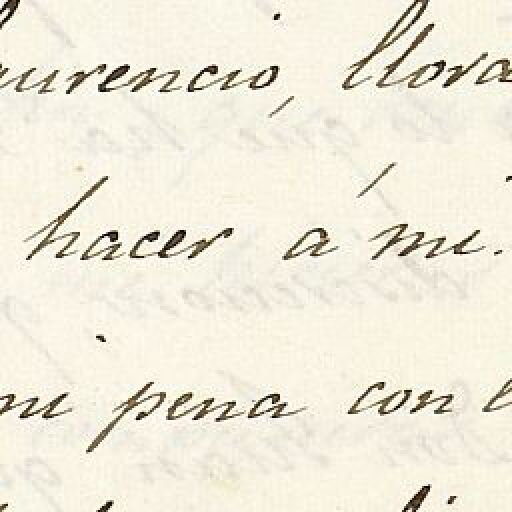 aurencio, llora
hacer á mi.
mi pena con